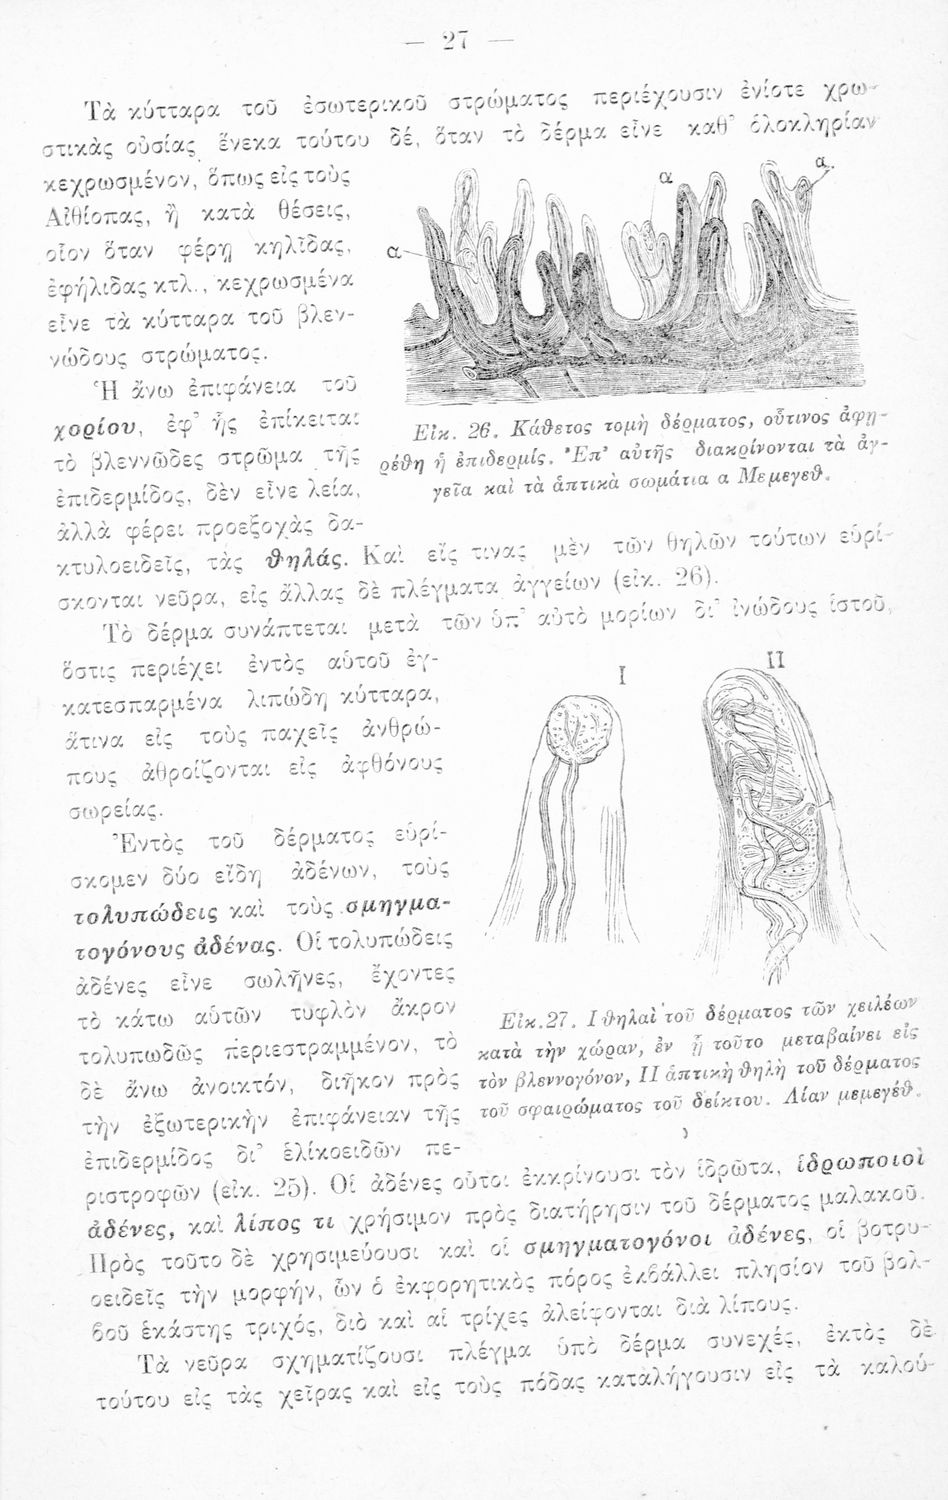 — 27 —
Τὰ κύτταρα τοῦ ἐσωτερικοῦ στρώματος περιέχουσιν ἐνίοτε χρω-
στικὰς οὐσίας ἕνεκα τούτου δέ, ὅταν τὸ δέρμα εἶνε καθ' ὁλοκληρίαν
κεχρωσμένον, ὅπως εἰς τοὺς
Αἰθίοπας, ἢ κατὰ θέσεις,
οἷον ὅταν φέρῃ κηλῖδας,
ἐφήλιδας κτλ., κεχρωσμένα
εἶνε τὰ κύτταρα τοῦ βλεν-
νώδους στρώματος.
Ἡ ἄνω ἐπιφάνεια τοῦ
χορίου, ἐφ' ἧς ἐπίκειται
τὸ βλεννῶδες στρῶμα τῆς
ἐπιδερμίδος, δὲν εἶνε λεία,
ἀλλὰ φέρει προεξοχὰς δα-
κτυλοειδεῖς, τὰς θηλάς. Καὶ εἴς τινας μὲν τῶν θηλῶν τούτων εὑρί-
σκονται νεῦρα, εἰς ἄλλας δὲ πλέγματα ἀγγείων (εἰκ. 26).
α
α
α.
Εἰκ. 26. Κάθετος τομὴ δέρματος, οὗτινος ἀφῃ-
ρέθη ἡ ἐπιδερμίς. Ἐπ' αὐτῆς διακρίνονται τὰ ἀγ-
γεῖα καὶ τὰ ἁπτικὰ σωμάτια α Μεμεγεθ.
Τὸ δέρμα συνάπτεται μετὰ τῶν ὑπ' αὐτὸ μορίων δι' ἰνώδους ἱστοῦ,
ὅστις περιέχει ἐντὸς αὑτοῦ ἐγ-
κατεσπαρμένα λιπώδη κύτταρα,
ἅτινα εἰς τοὺς παχεῖς ἀνθρώ-
πους ἀθροίζονται εἰς ἀφθόνους
σωρείας.
Ἐντὸς τοῦ δέρματος εὑρί-
σκομεν δύο εἴδη ἀδένων, τοὺς
τολυπώδεις καὶ τοὺς σμηγμα-
τογόνους ἀδένας. Οἱ τολυπώδεις
ἀδένες εἶνε σωλῆνες, ἔχοντες
τὸ κάτω αὑτῶν τυφλὸν ἄκρον
τολυπωδῶς περιεστραμμένον, τὸ
δὲ ἄνω ἀνοικτόν, διῆκον πρὸς
τὴν ἐξωτερικὴν ἐπιφάνειαν τῆς
ἐπιδερμίδος δι' ἑλικοειδῶν πε-
ριστροφῶν (εἰκ. 25). Οἱ ἀδένες οὗτοι ἐκκρίνουσι τὸν ἱδρῶτα, ἱδρωποιοὶ
ἀδένες, καὶ λίπος τι χρήσιμον πρὸς διατήρησιν τοῦ δέρματος μαλακοῦ.
Πρὸς τοῦτο δὲ χρησιμεύουσι καὶ οἱ σμηγματογόνοι ἀδένες, οἱ βοτρυ-
οειδεῖς τὴν μορφήν, ὧν ὁ ἐκφορητικὸς πόρος ἐκβάλλει πλησίον τοῦ βολ-
βοῦ ἑκάστης τριχός, διὸ καὶ αἱ τρίχες ἀλείφονται διὰ λίπους.
I
II
Εἰκ. 27. I θηλαὶ τοῦ δέρματος τῶν χειλέων
κατὰ τὴν χώραν, ἐν ᾗ τοῦτο μεταβαίνει εἰς
τὸν βλεννογόνον, II ἁπτικὴ θηλὴ τοῦ δέρματος
τοῦ σφαιρώματος τοῦ δείκτου. Λίαν μεμεγέθ.
Τὰ νεῦρα σχηματίζουσι πλέγμα ὑπὸ δέρμα συνεχές, ἐκτὸς δὲ
τούτου εἰς τὰς χεῖρας καὶ εἰς τοὺς πόδας καταλήγουσιν εἰς τὰ καλού-